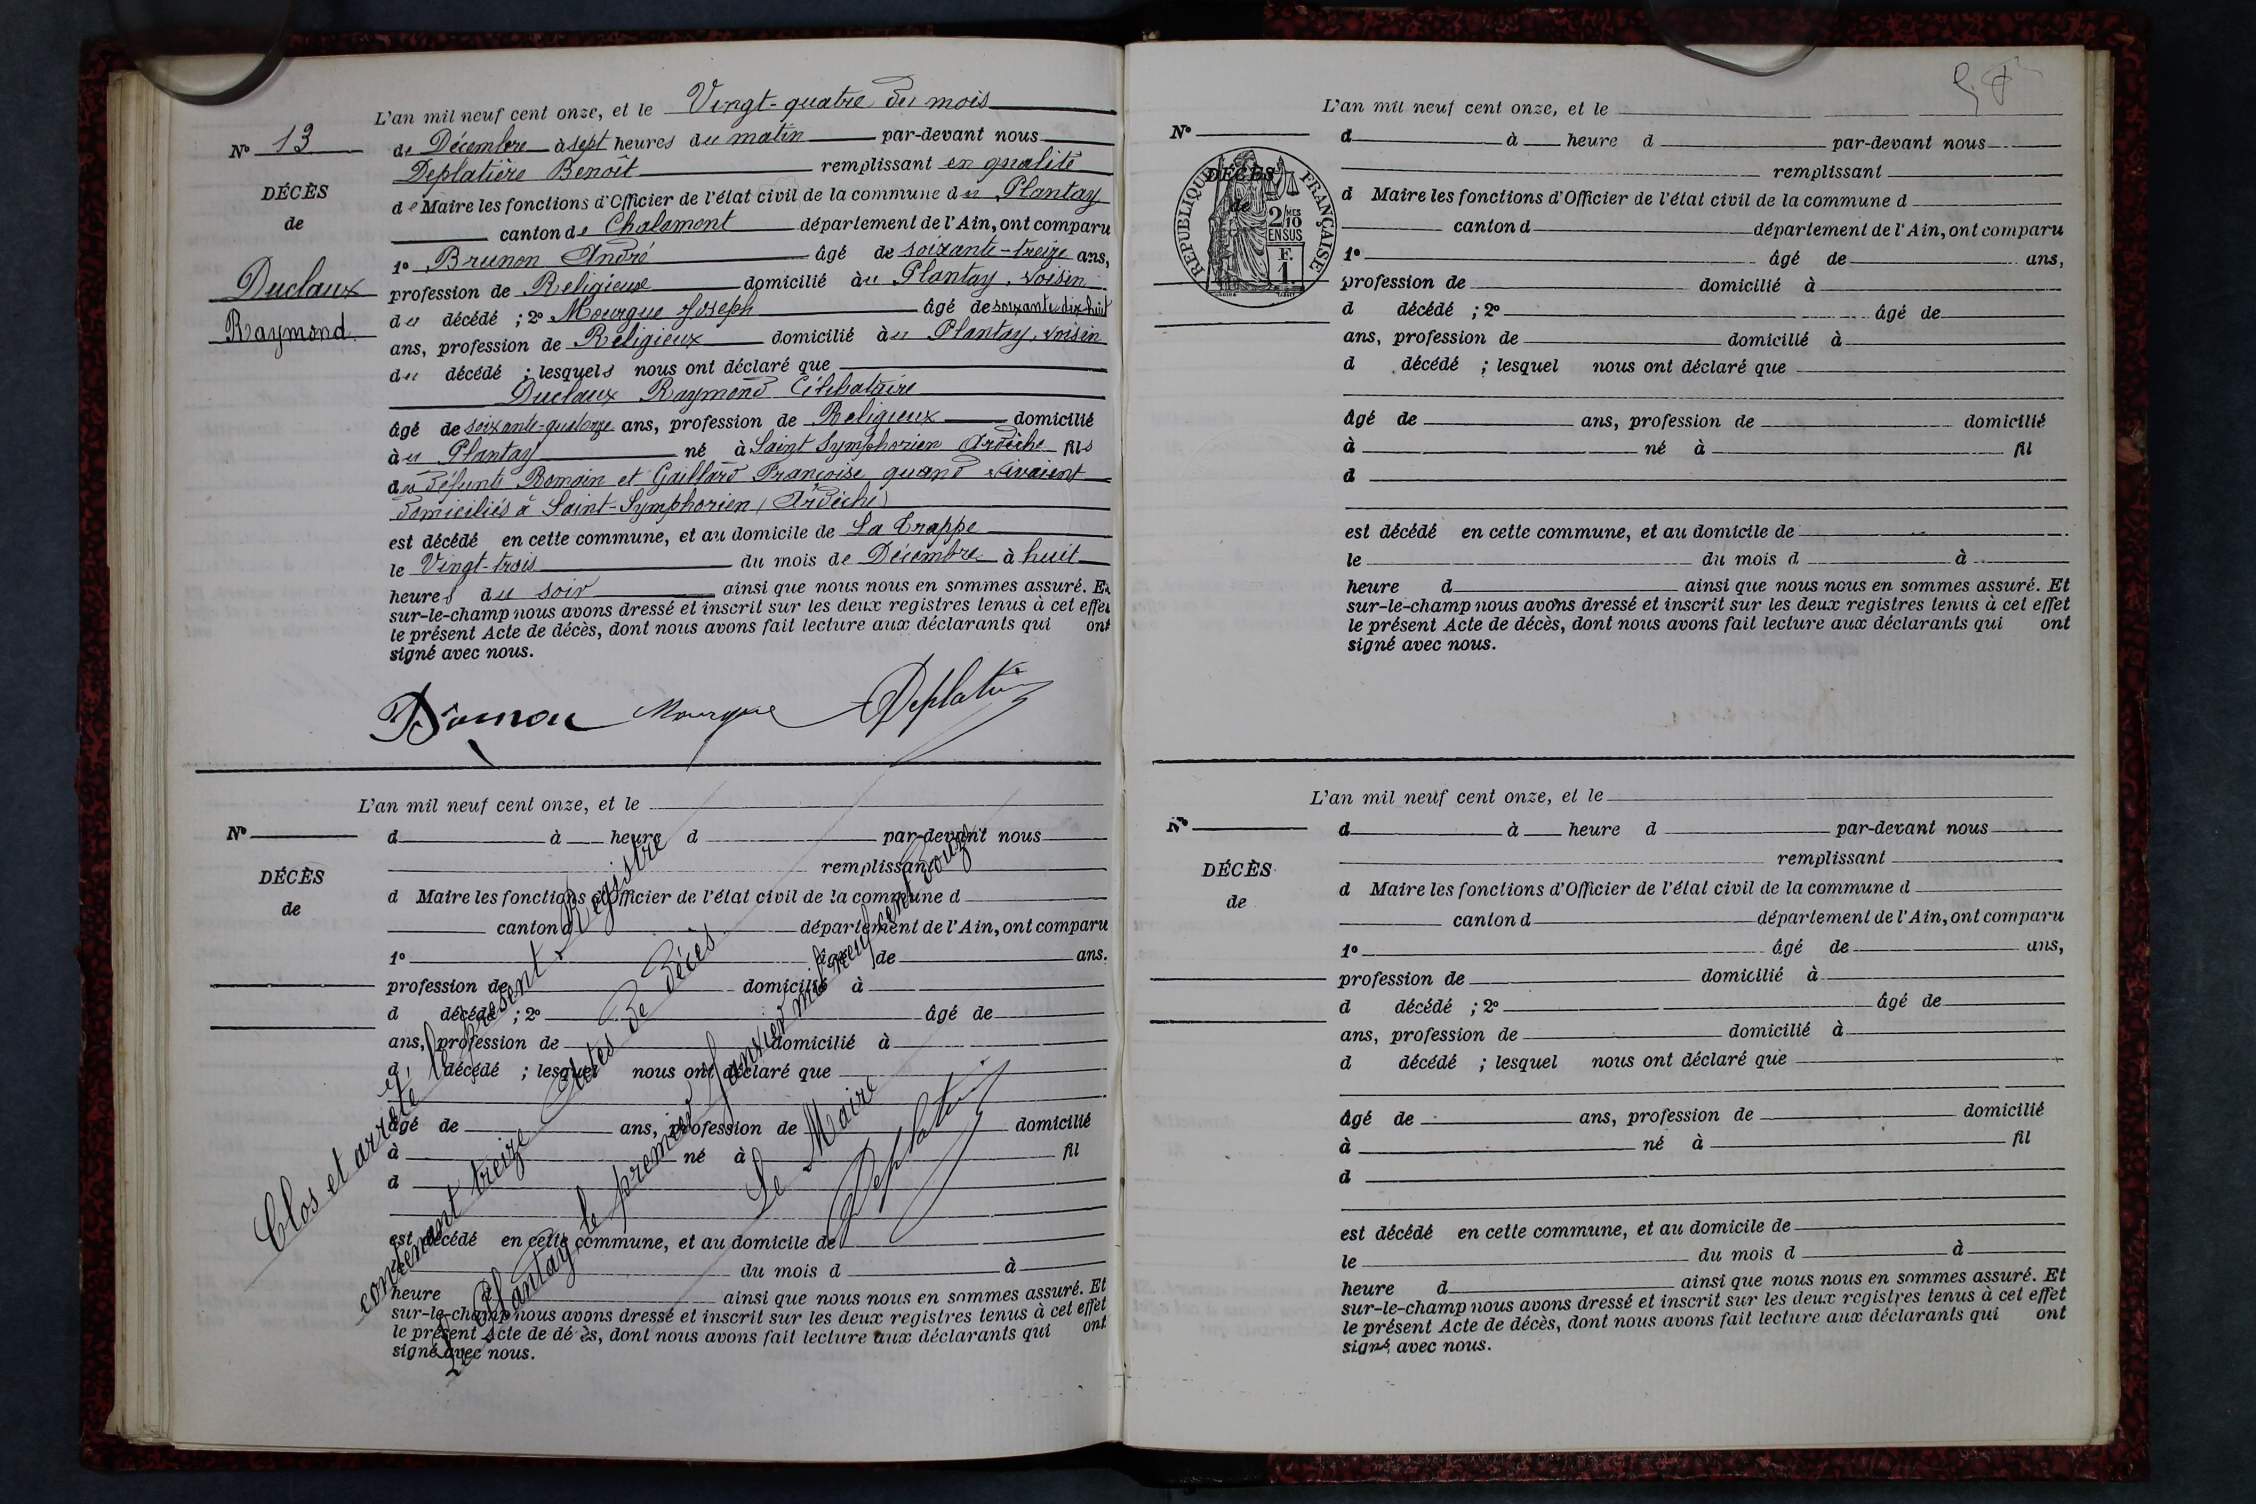 L'an mil neuf cent onze, et le Vingt-quatre du mois
N° 13
de Décembre à sept heures du matin par-devant nous
Deplatière Benoît remplissant en qualité
DÉCÈS
de Maire les fonctions d'Officier de l'état civil de la commune du Plantay
de
canton de Chalamont département de l'Ain, ont comparu
1° Brunon André âgé de soixante-treize ans,
Duclaux
profession de Religieux domicilié au Plantay, voisin
Raymond
du décédé ; 2° Mourgue Joseph âgé de soixante dix huit
ans, profession de Religieux domicilié au Plantay, voisin
du décédé ; lesquels nous ont déclaré que
Duclaux Raymond Célibataire
âgé de soixante-quatorze ans, profession de Religieux domicilié
au Plantay né à Saint Symphorien Ardèche fils
des défunts Romain et Gaillard Françoise quand vivaient
domiciliés à Saint-Symphorien (Ardèche)
est décédé en cette commune, et au domicile de La Trappe
le Vingt-trois du mois de Décembre à huit
heures du soir ainsi que nous nous en sommes assuré. Et
sur-le-champ nous avons dressé et inscrit sur les deux registres tenus à cet effet
le présent Acte de décès, dont nous avons fait lecture aux déclarants qui ont
signé avec nous.
Mourgue Deplatière
L'an mil neuf cent onze, et le
N°
d à heure d par-devant nous
remplissant
DÉCÈS
d Maire les fonctions d'Officier de l'état civil de la commune d
de
canton d département de l'Ain, ont comparu
1° âgé de ans.
profession de domicilié à
d décédé ; 2° âgé de
ans, profession de domicilié à
d décédé ; lesquel nous ont déclaré que
âgé de ans, profession de domicilié
à né à fil
d
est décédé en cette commune, et au domicile de
le du mois d à
heure d ainsi que nous nous en sommes assuré. Et
sur-le-champ nous avons dressé et inscrit sur les deux registres tenus à cet effet
le présent Acte de décès, dont nous avons fait lecture aux déclarants qui ont
signé avec nous.
Clos et arrêté le présent Registre
contenant treize Actes de Décès
Plantay, le premier Janvier mil neuf cent douze
Le Maire
Deplatière
L'an mil neuf cent onze, et le
N°
d à heure d par-devant nous
remplissant
DÉCÈS
de
RÉPUBLIQUE FRANÇAISE
2/10 MES
EN SUS
F.
1.
d Maire les fonctions d'Officier de l'état civil de la commune d
canton d département de l'Ain, ont comparu
1° âgé de ans,
profession de domicilié à
d décédé ; 2° âgé de
ans, profession de domicilié à
d décédé ; lesquel nous ont déclaré que
âgé de ans, profession de domicilié
à né à fil
d
est décédé en cette commune, et au domicile de
le du mois d à
heure d ainsi que nous nous en sommes assuré. Et
sur-le-champ nous avons dressé et inscrit sur les deux registres tenus à cet effet
le présent Acte de décès, dont nous avons fait lecture aux déclarants qui ont
signé avec nous.
L'an mil neuf cent onze, et le
N°
d à heure d par-devant nous
remplissant
DÉCÈS
d Maire les fonctions d'Officier de l'état civil de la commune d
de
canton d département de l'Ain, ont comparu
1° âgé de ans,
profession de domicilié à
d décédé ; 2° âgé de
ans, profession de domicilié à
d décédé ; lesquel nous ont déclaré que
âgé de ans, profession de domicilié
à né à fil
d
est décédé en cette commune, et au domicile de
le du mois d à
heure d ainsi que nous nous en sommes assuré. Et
sur-le-champ nous avons dressé et inscrit sur les deux registres tenus à cet effet
le présent Acte de décès, dont nous avons fait lecture aux déclarants qui ont
signé avec nous.